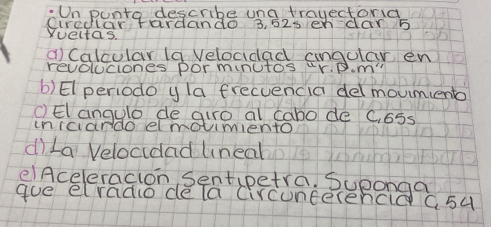 ·Un punto describe una trayectoria
circular tardando 3,52s en dar 5
vueltas.
a) Calcular la velocidad angular en
revoluciones por minutos "r.p.m"
b) El periodo y la frecuencia del movimiento
c) El angulo de giro al cabo de 0,65s
iniciando el movimiento
d) La velocidad lineal
e) Aceleración Sentipetra. Suponga
que el radio de la circunferencia 0,54